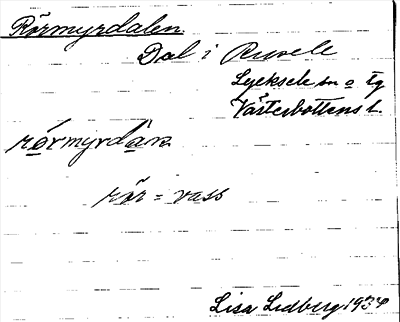 Rörmyrdalen.
Dal i Rusele
Lycksele sn o tg
Västerbottens l.
rörmyrdan
rör = vass
Lisa Lidberg 1934